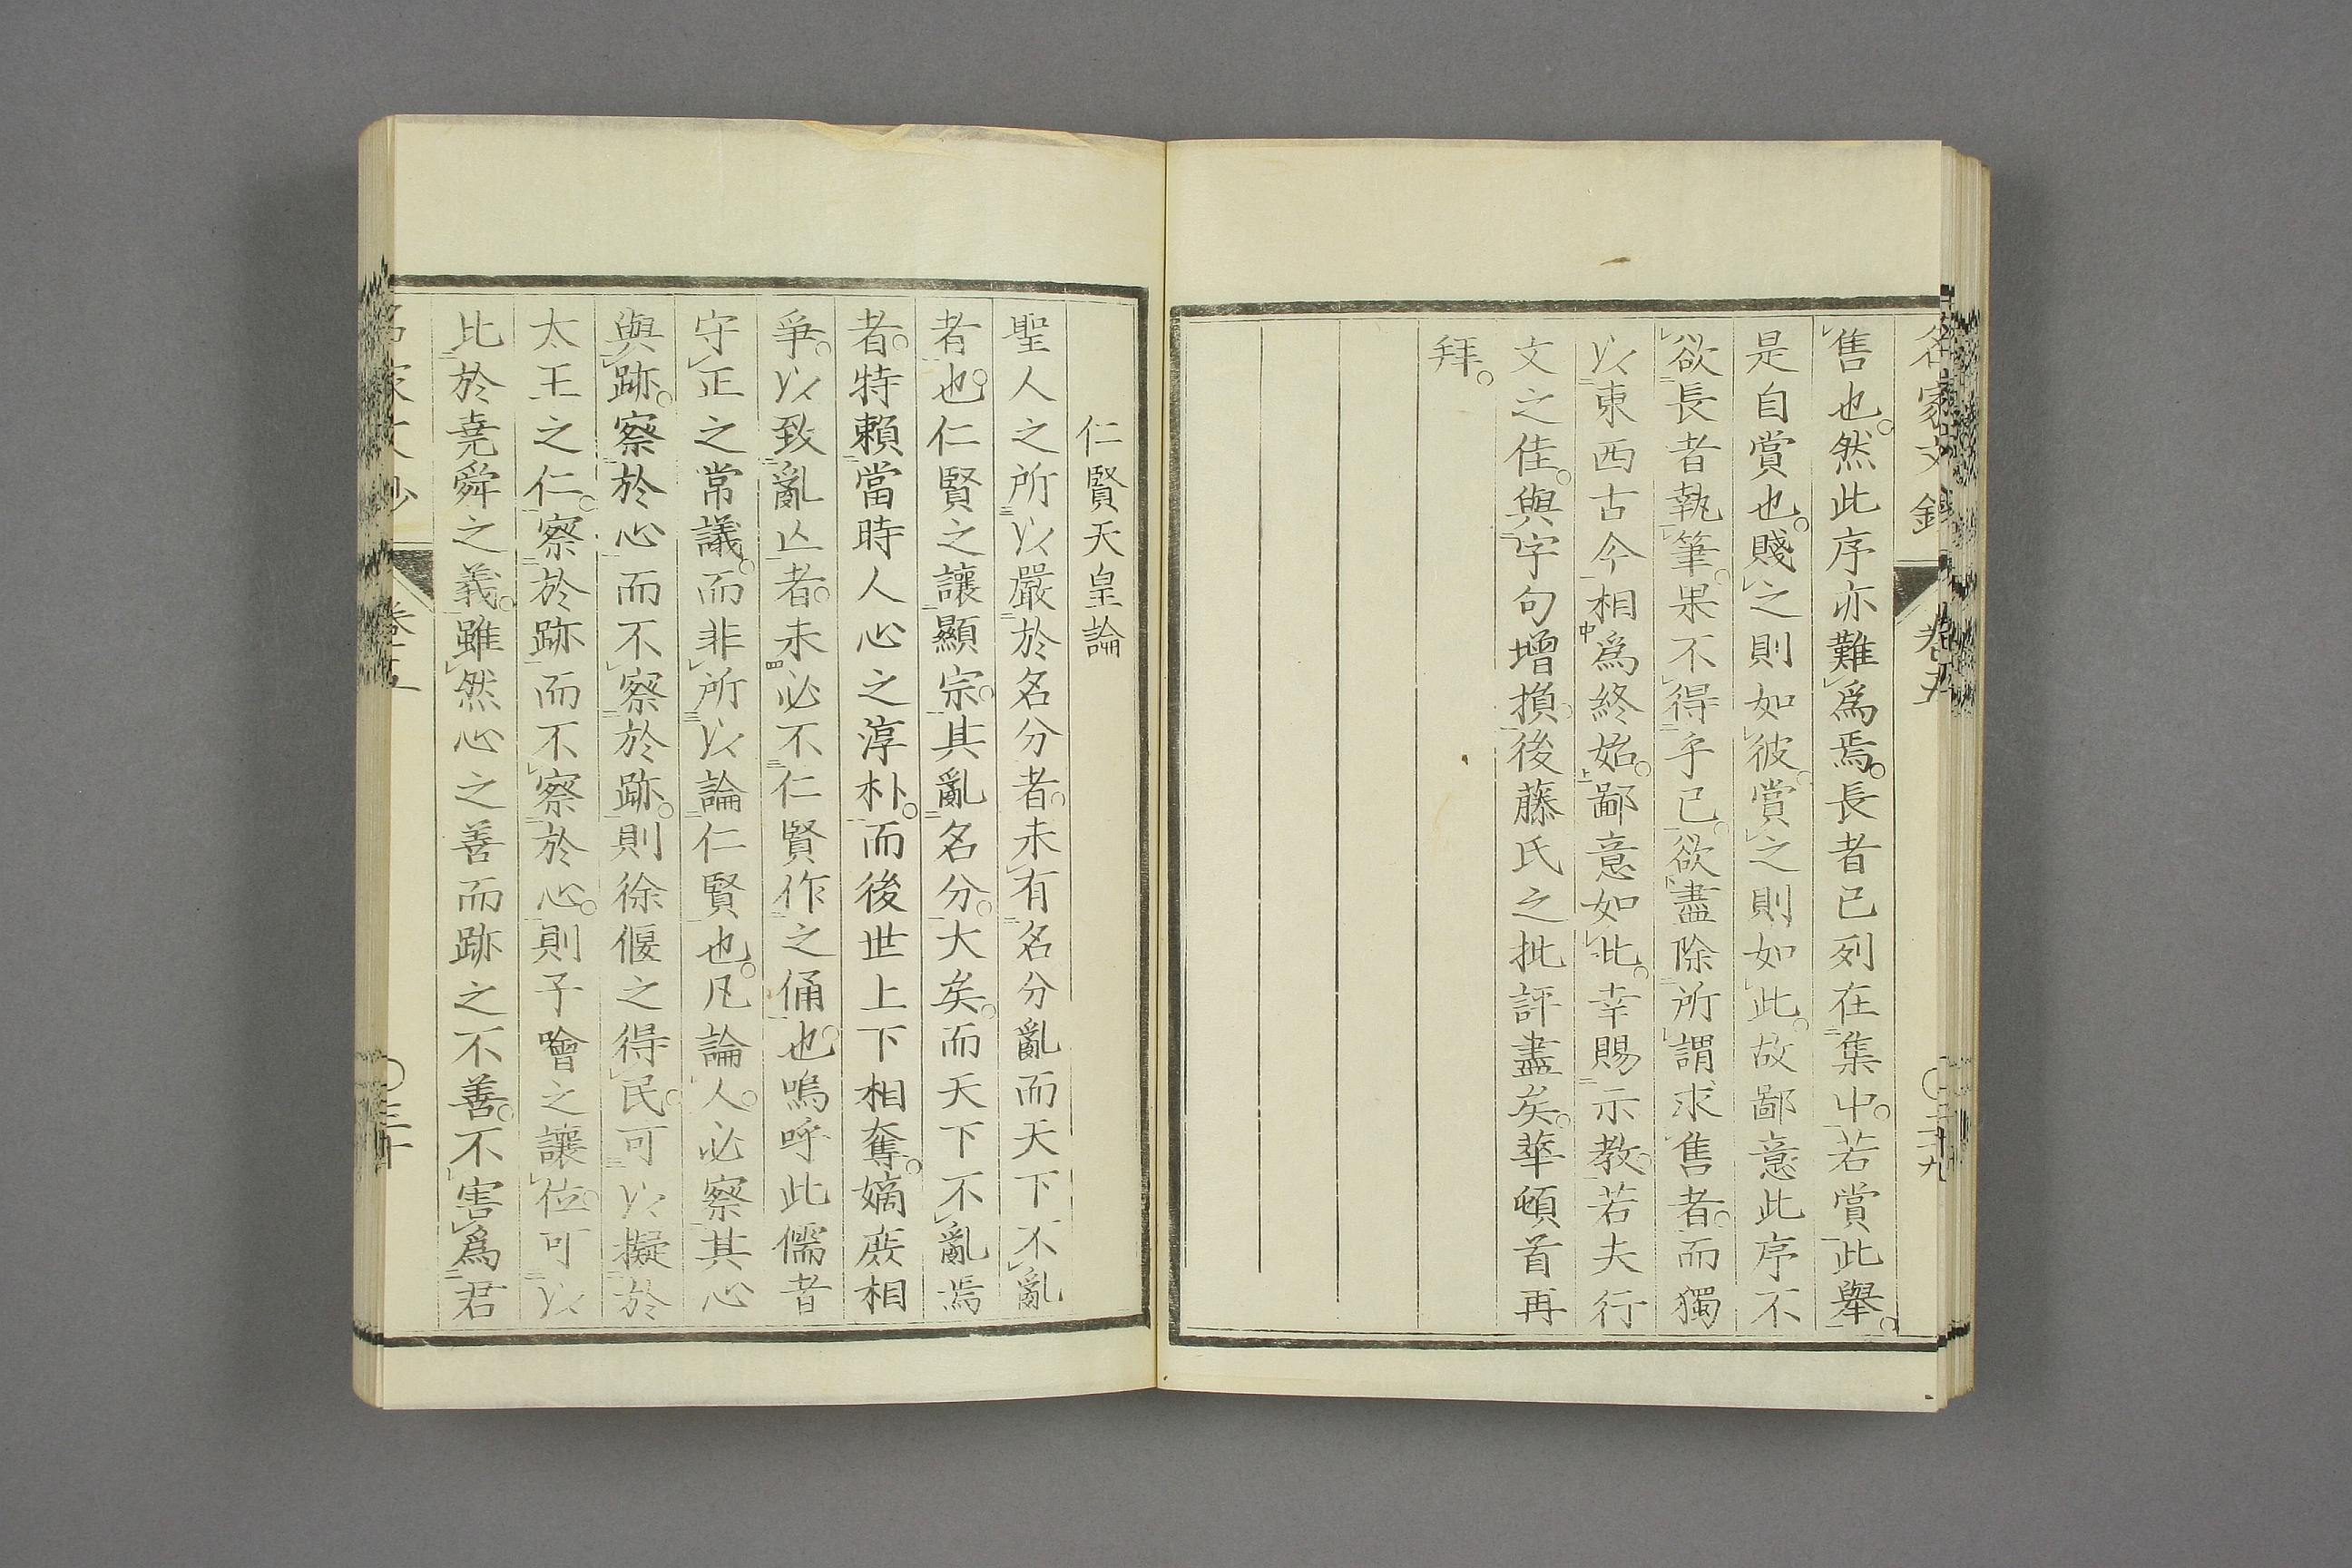 名家文鈔 卷五 ○二十九
售也。然此序亦難爲焉。長者已列在集中。若賞此擧。
是自賞也。賤之則如彼。賞之則如此。故鄙意此序不
欲長者執筆。果不得乎已。欲盡除所謂求售者。而獨
以東西古今相爲終始。鄙意如此。幸賜示教。若夫行
文之佳。與字句增損。後藤氏之批評盡矣。華頓首再
拜。
仁賢天皇論
聖人之所以嚴於名分者。未有名分亂而天下不亂
者也。仁賢之讓顯宗。其亂名分。大矣。而天下不亂焉
者。特賴當時人心之淳朴。而後世上下相奪。嫡庻相
爭。以致亂亾者。未必不仁賢作之俑也。嗚呼此儒者
守正之常議。而非所以論仁賢也。凡論人。必察其心
與跡。察於心而不察於跡。則徐偃之得民。可以擬於
太王之仁。察於跡而不察於心。則子噲之讓位。可以
比於堯舜之義。雖然心之善而跡之不善。不害爲君
名家文鈔 卷五 ○三十